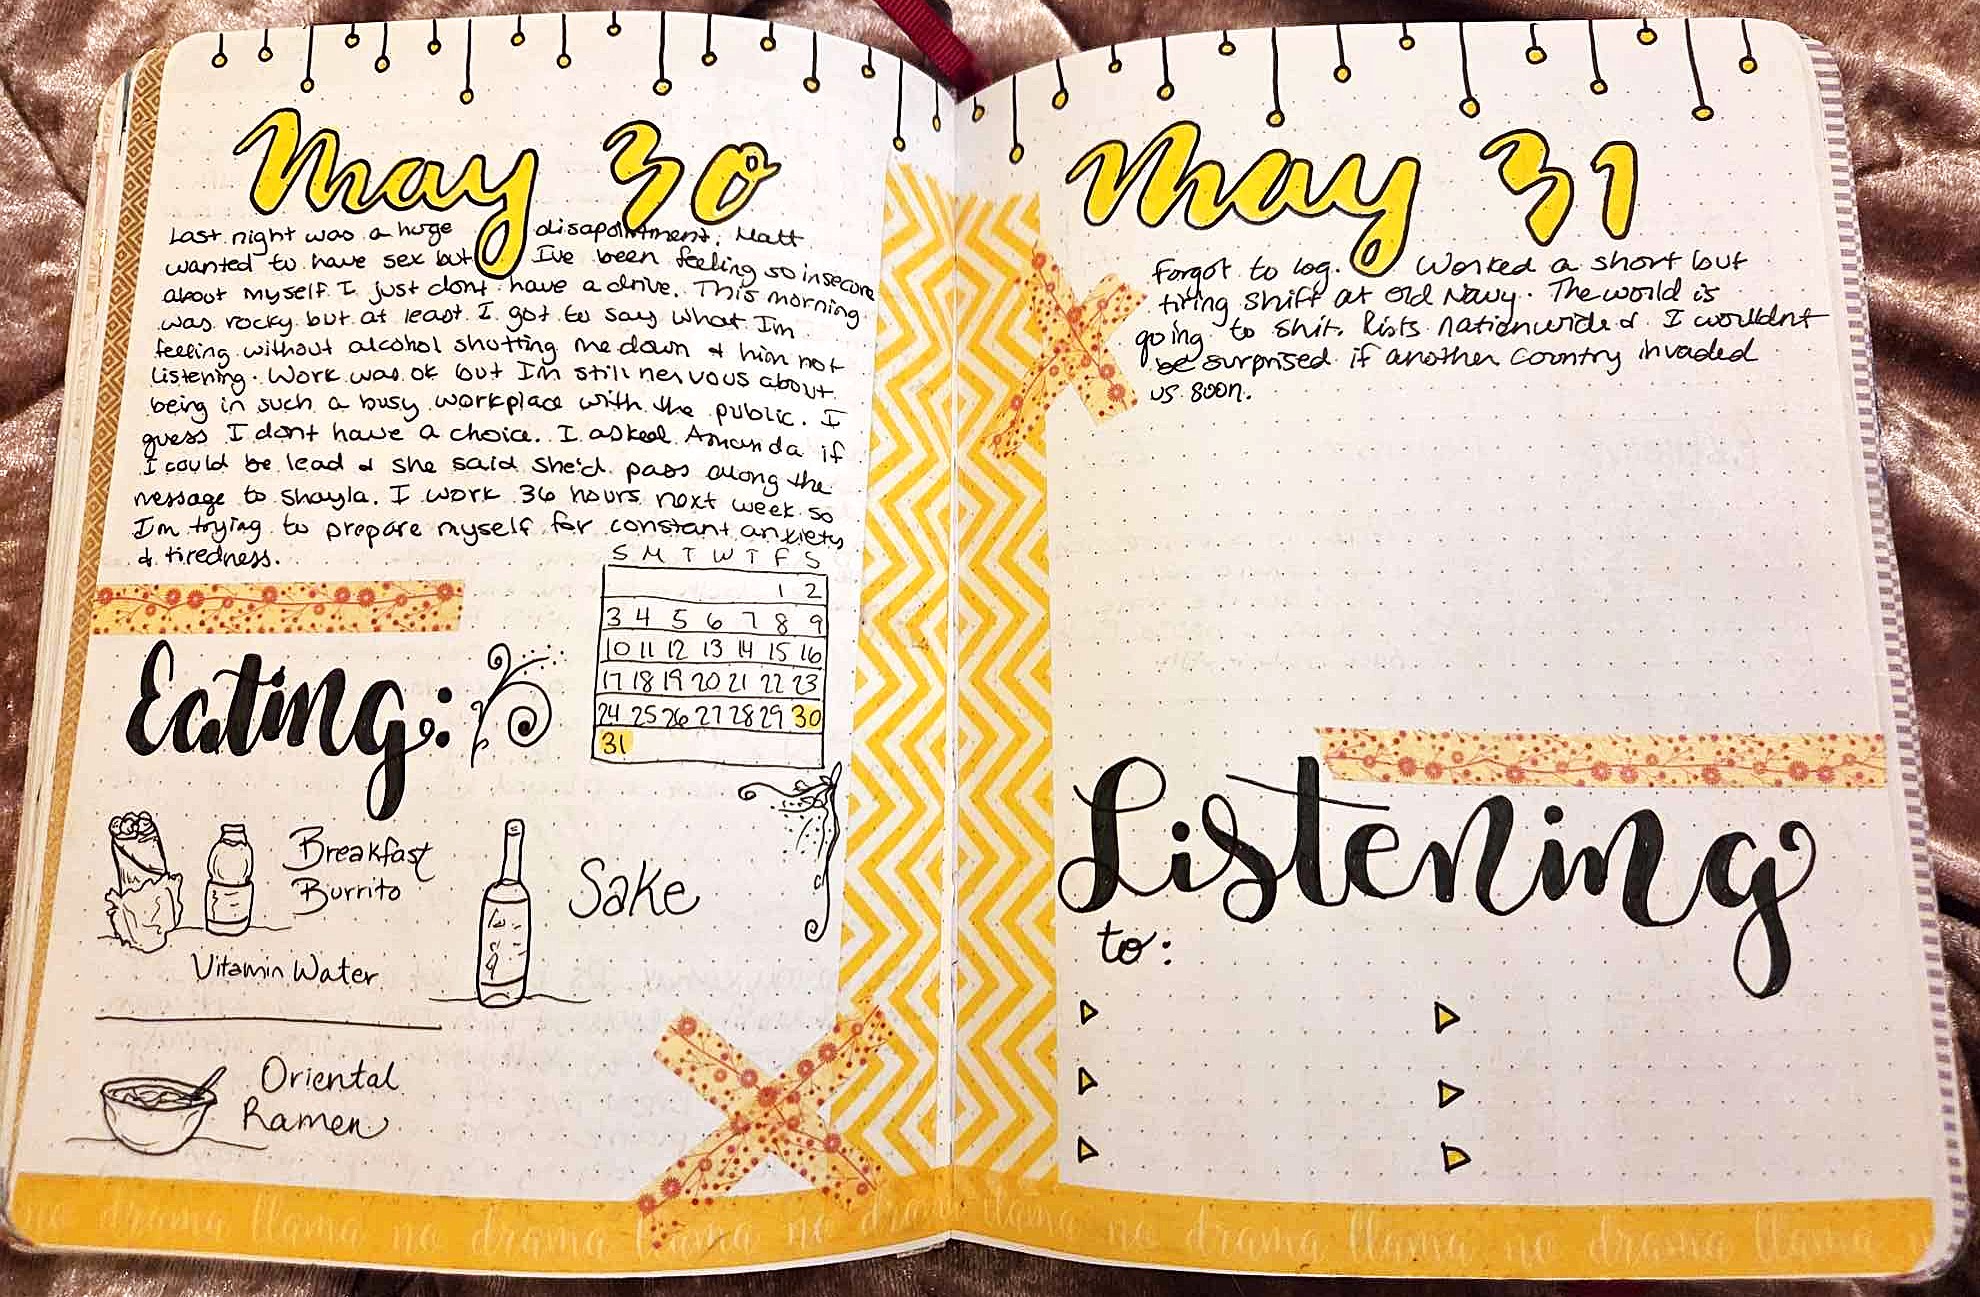 May 30
Last night was a huge disapointment. Matt
wanted to have sex but I've been feeling so insecure
about myself I just dont have a drive. This morning
was rocky but at least I got to say what Im
feeling without alcohol shutting me down & him not
listening. Work was ok but Im still nervous about
being in such a busy workplace with the public. I
guess I dont have a choice. I asked Amanda if
I could be lead & she said she'd pass along the
message to Shayla. I work 36 hours next week so
Im trying to prepare myself for constant anxiety
& tiredness.
S M T W T F S
1 2
3 4 5 6 7 8 9
10 11 12 13 14 15 16
17 18 19 20 21 22 23
24 25 26 27 28 29 30
31
Eating:
Breakfast
Burrito
Vitamin Water
Sake
Oriental
Ramen
May 31
Forgot to log. Worked a short but
tiring shift at Old Navy. The world is
going to shit. Riots nationwide & I wouldnt
be surprised if another country invaded
us soon.
Listening
to:
no drama llama no drama llama no drama llama no drama llama no drama llama